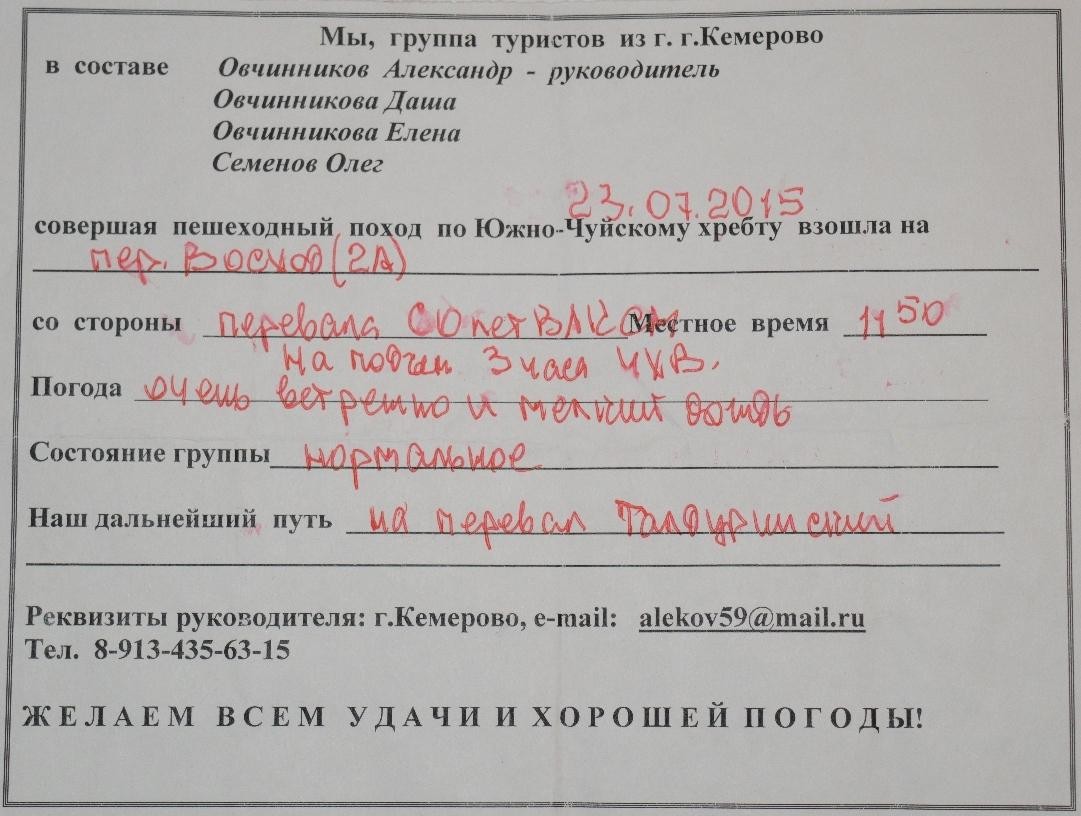 Мы, группа туристов из г. г.Кемерово
в составе Овчинников Александр - руководитель
Овчинникова Даша
Овчинникова Елена
Семенов Олег
23.07.2015
совершая пешеходный поход по Южно-Чуйскому хребту взошла на
пер. Восход (2А)
со стороны перевала Местное время 11 50
На 3 часа
Погода очень ветрешно и мелкий дождь
Состояние группы нормальное
Наш дальнейший путь на перевал Талдуринский
Реквизиты руководителя: г.Кемерово, e-mail: alekov59@mail.ru
Тел. 8-913-435-63-15
ЖЕЛАЕМ ВСЕМ УДАЧИ И ХОРОШЕЙ ПОГОДЫ!